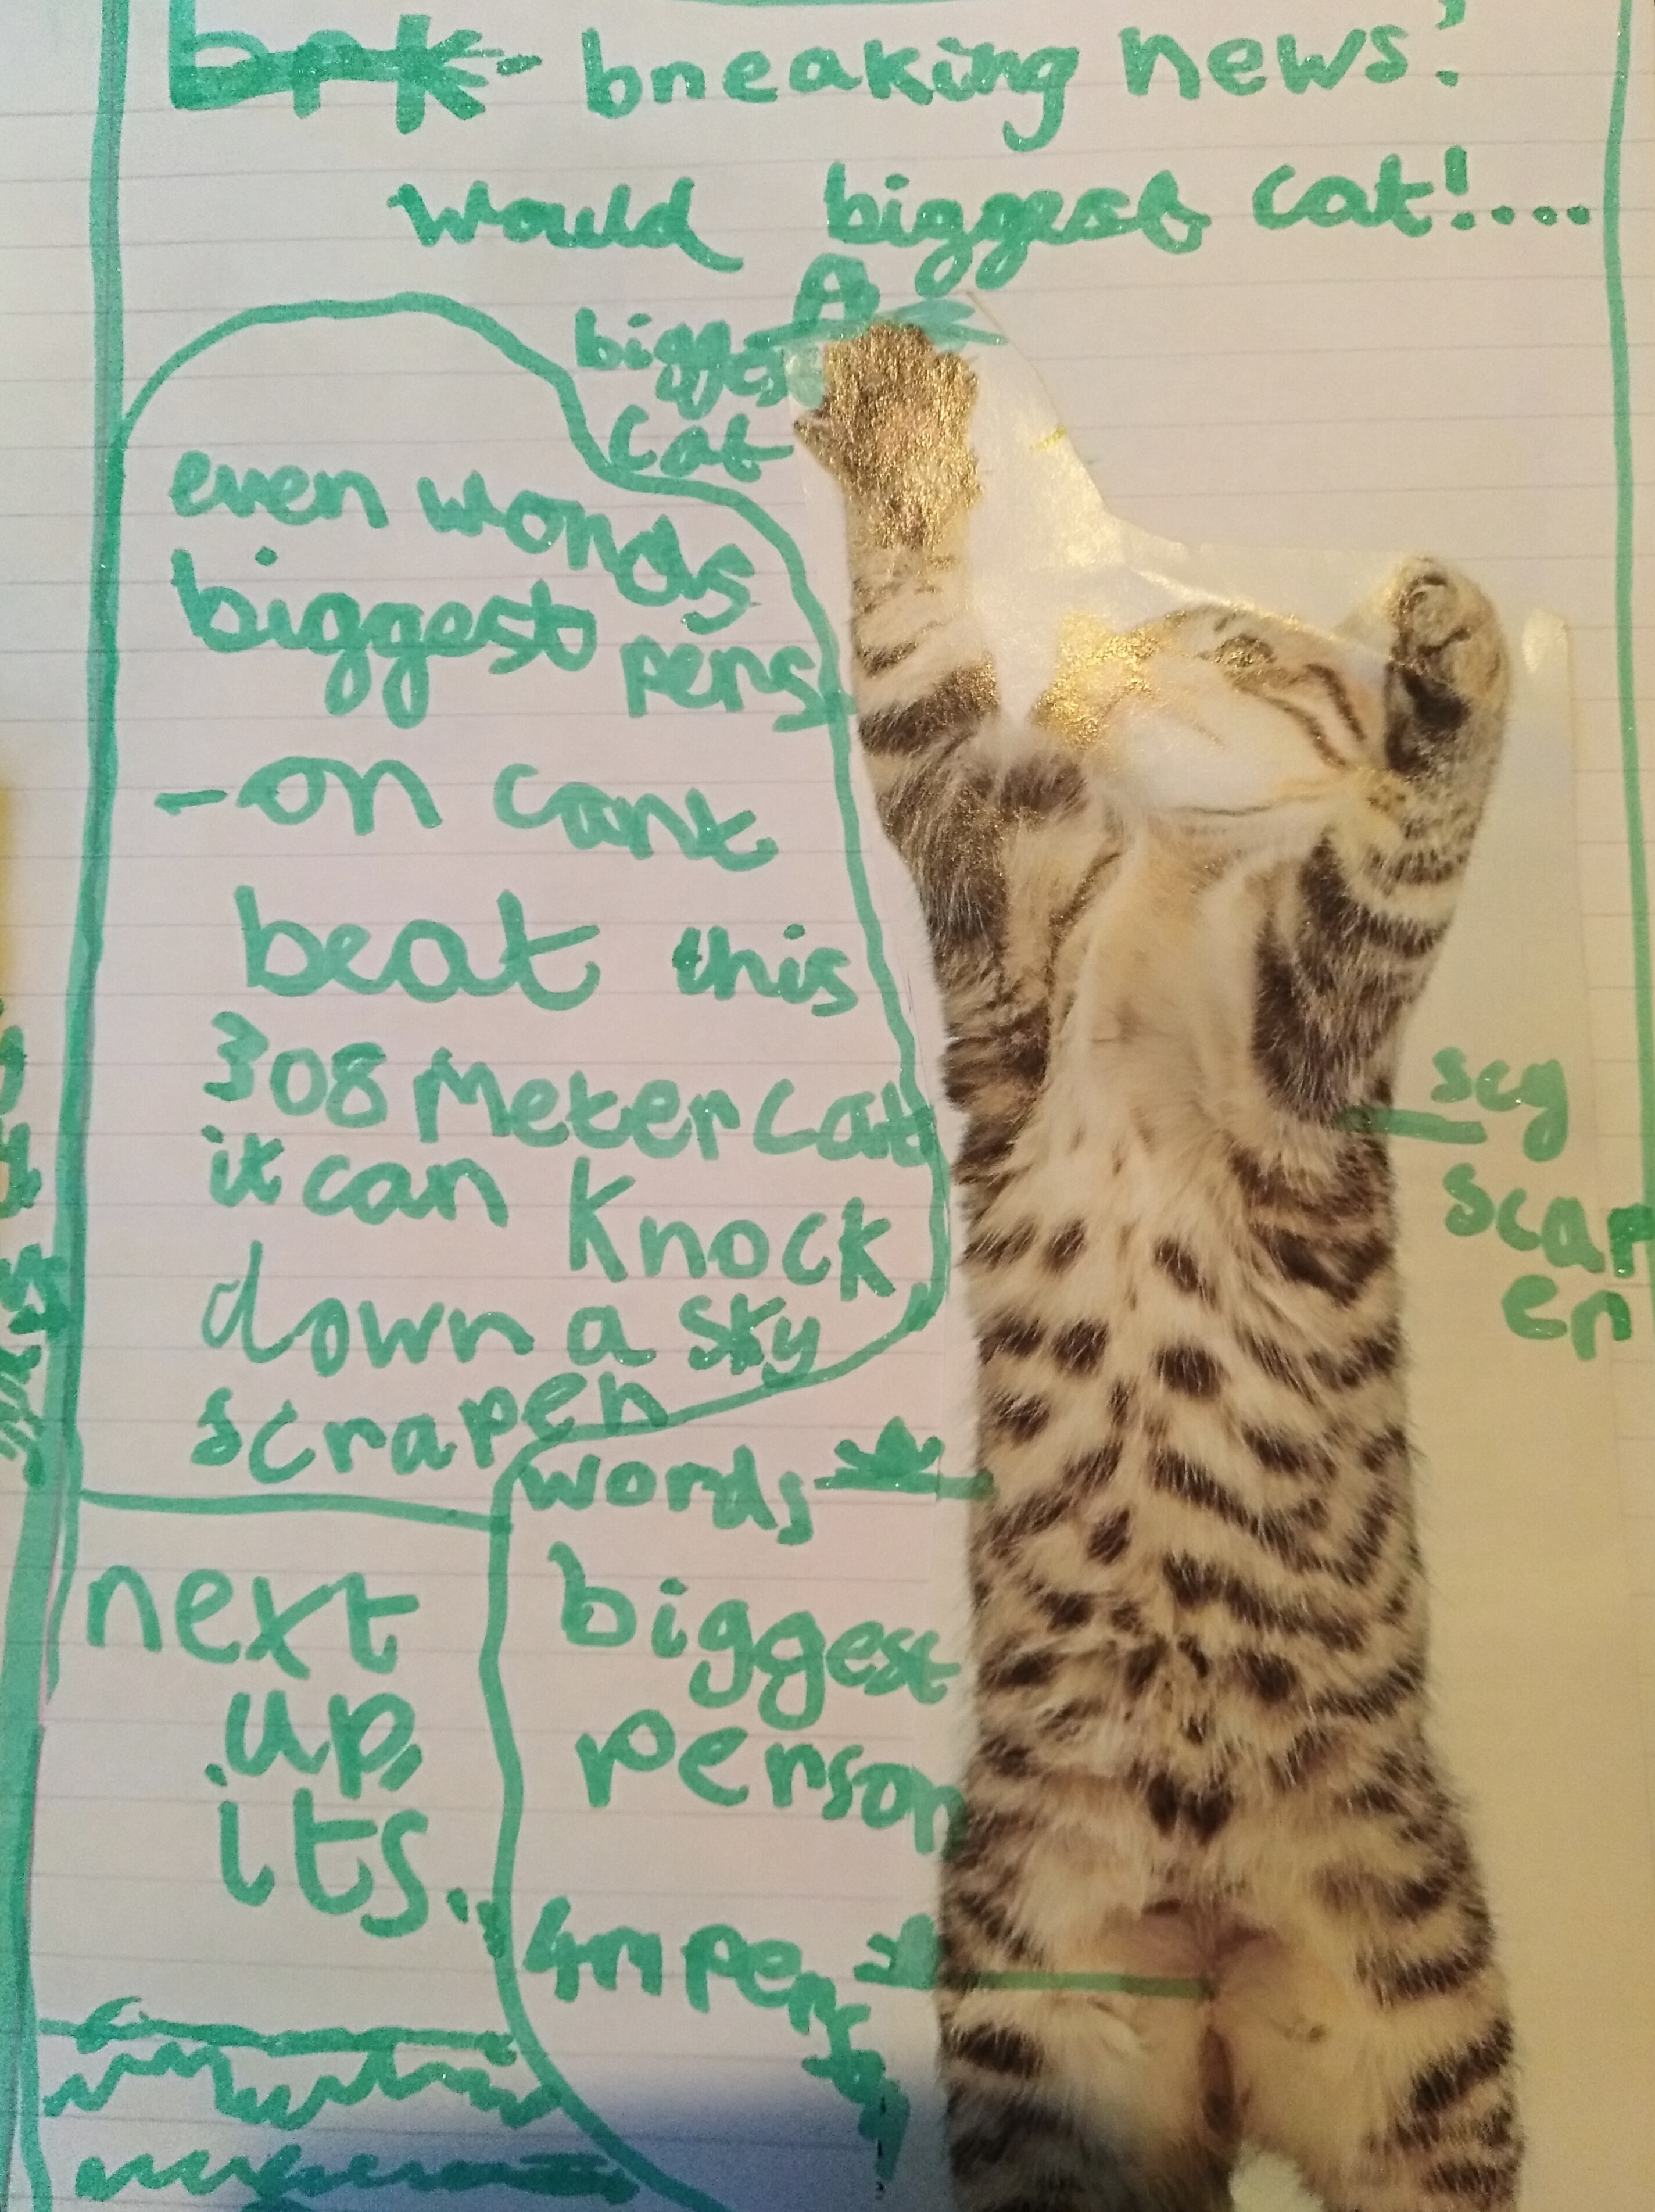 breaking news!
would biggest cat!....
biggest
cat
even words
biggest pers
-on cant
beat this
308 meter cat
it can knock
down a sky
scraper
scy
scar
er
words
biggest
person
4m pers
next
up,
its..